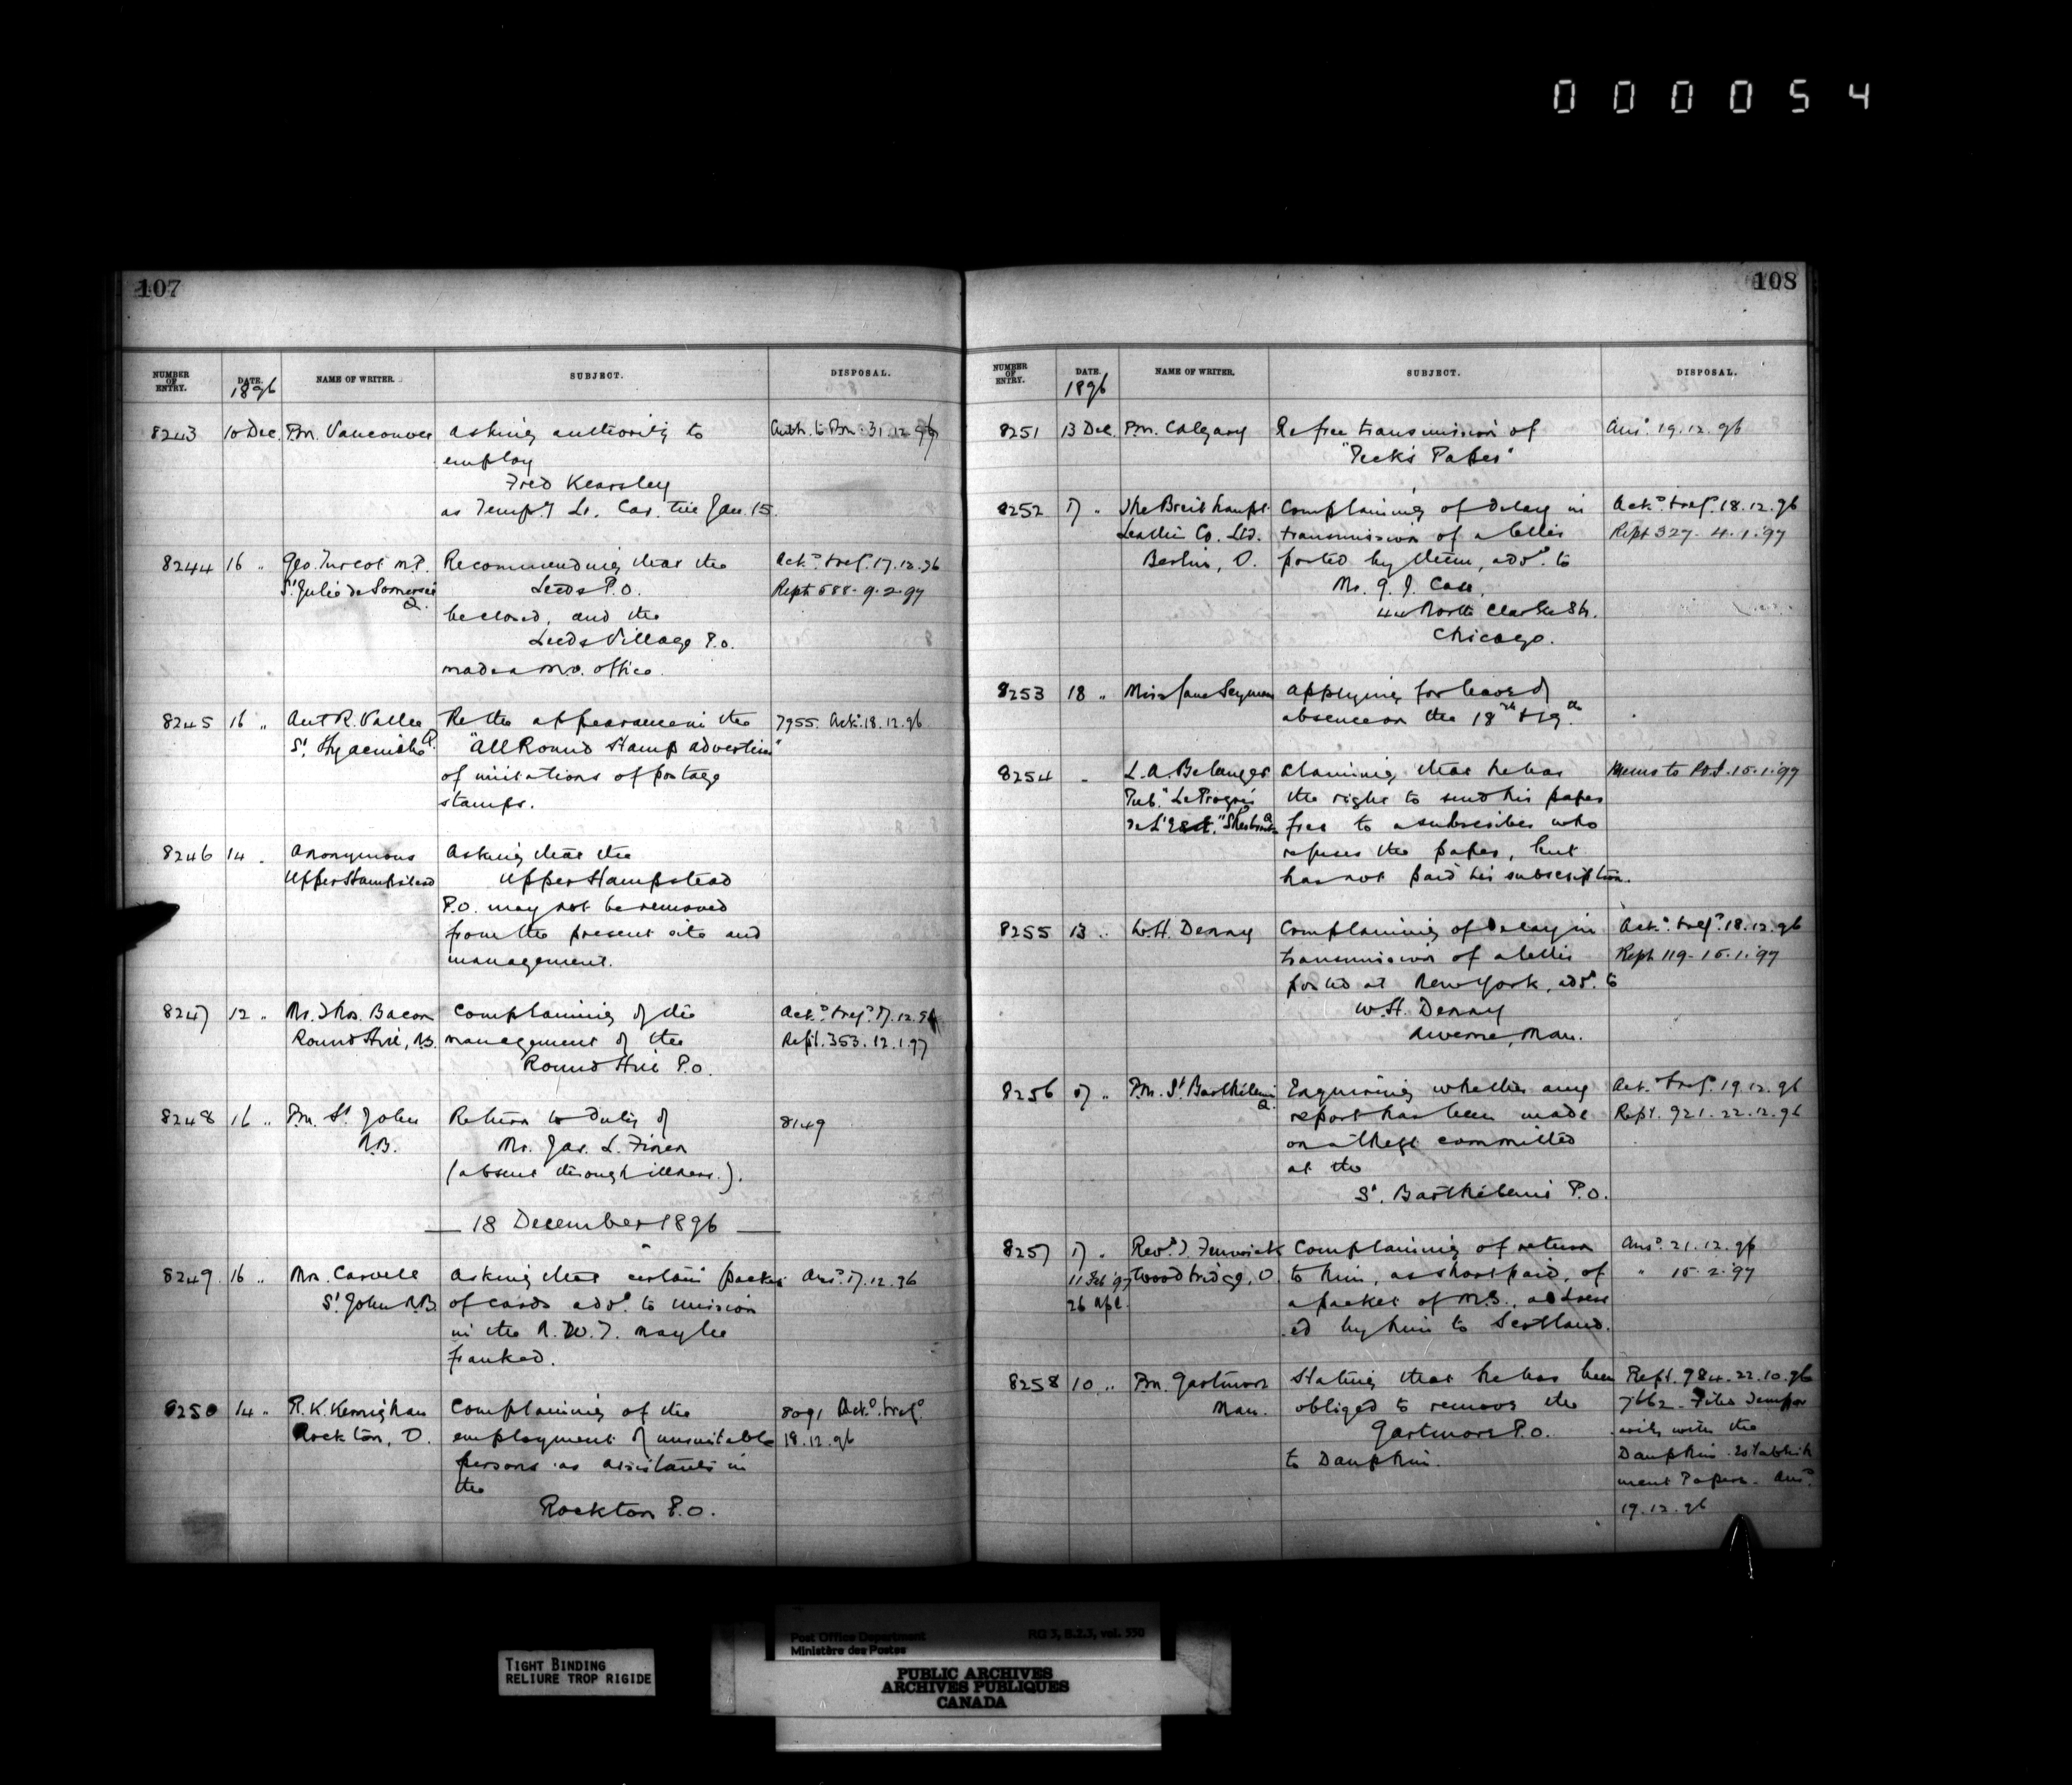 000054
107
NUMBER OF ENTRY. DATE. NAME OF WRITER. SUBJECT. DISPOSAL.
1896
8243 10 Dec. Pm. Vancouver asking authority to Auth. to Pm. 31.12.96
employ
Fred Kearsley
as Tempy Lr. Car. till Jan. 15.
8244 16 " Geo. Turcot M.P. Recommending that the Ackd. & refd. 17.12.96
St. Julie de Somerset Leeds P.O. Rept 588-9-2-97
Q. be closed, and the
Leeds Village P.O.
made a M.O. office.
8245 16 " Ant R. Vallee Re the appearance in the 7955. Ackd. 18.12.96
St. Hyacinthe Q. "All Round Stamp Advertiser"
of imitations of postage
stamps.
8246 14 " Anonymous Asking that the
Upper Hampstead Upper Hampstead
P.O. may not be removed
from the present site and
management.
8247 12 " Mr. Thos. Bacon Complaining of the Ackd. & refd. 17.12.96
Round Hill, management of the Rept. 353. 12.1.97
Round Hill P.O.
8248 16 " Pm. St. John Return to duty of 8149
N.B. Mr. Jas. L. Finen
(absent through illness.).
— 18 December 1896 —
8249 16 " Mrs. Carvell Asking that certain packet Ansd. 17.12.96
St. John N.B. of cards addd. to mission
in the N.W.T. may be
franked.
8250 14 " R.K. Kernighan Complaining of the 8091 Ackd. & refd.
Rockton, O. employment of unsuitable 18.12.96
persons as assistants in
the
Rockton P.O.
108
NUMBER OF ENTRY. DATE. NAME OF WRITER. SUBJECT. DISPOSAL.
1896
8251 13 Dec. Pm. Calgary Re free transmission of Ansd. 19.12.96
"Peck's Paper"
8252 17 " The Breithaupt Complaining of delay in Ackd. & refd. 18.12.96
Leather Co. Ltd. transmission of a letter Rept 327. 4.1.97
Berlin, O. posted by them, addd. to
Mr. G. J. Case,
44 North Clarke St.
Chicago.
8253 18 " Miss Jane Seymour Applying for leave of
absence on the 18th & 19th.
8254 " L.A. Belanger Claiming that he has Memo to PO 15.1.97
Pub. "Le Progrès the right to send his paper
de L'Est," Sherbrooke Q. free to a subscriber who
refuses the paper, but
has not paid his subscription.
8255 13 " W.H. Denny Complaining of delay in Ackd. & refd. 18.12.96
transmission of a letter Rept 119-15.1.97
posted at New York, addd. to
W.H. Denny
Man.
8256 17 " Pm. St. Barthélemi Enquiring whether any Ackd. & refd. 19.12.96
Q. report has been made Rept. 921. 22.12.96
on a theft committed
at the
St. Barthélemi P.O.
8257 17 " Revd. J. Fenwick Complaining of return Ansd. 21.12.96
11 Feb '97 Woodbridge, O. to him, as short paid, of " 15.2.97
26 Apl. a packet of M.S., address
ed by him to Scotland.
8258 10 " Pm. Gartmore Stating that he has been Rept. 984.22.10.96
Man. obliged to remove the 7662. Filed tempor
Gartmore P.O. arily with the
to Dauphin. Dauphin Establish
ment Papers. Ansd.
19.12.96
TIGHT BINDING
RELIURE TROP RIGIDE
Post Office Department RG 3, B.2.3, vol. 550
Ministère des Postes
PUBLIC ARCHIVES
ARCHIVES PUBLIQUES
CANADA